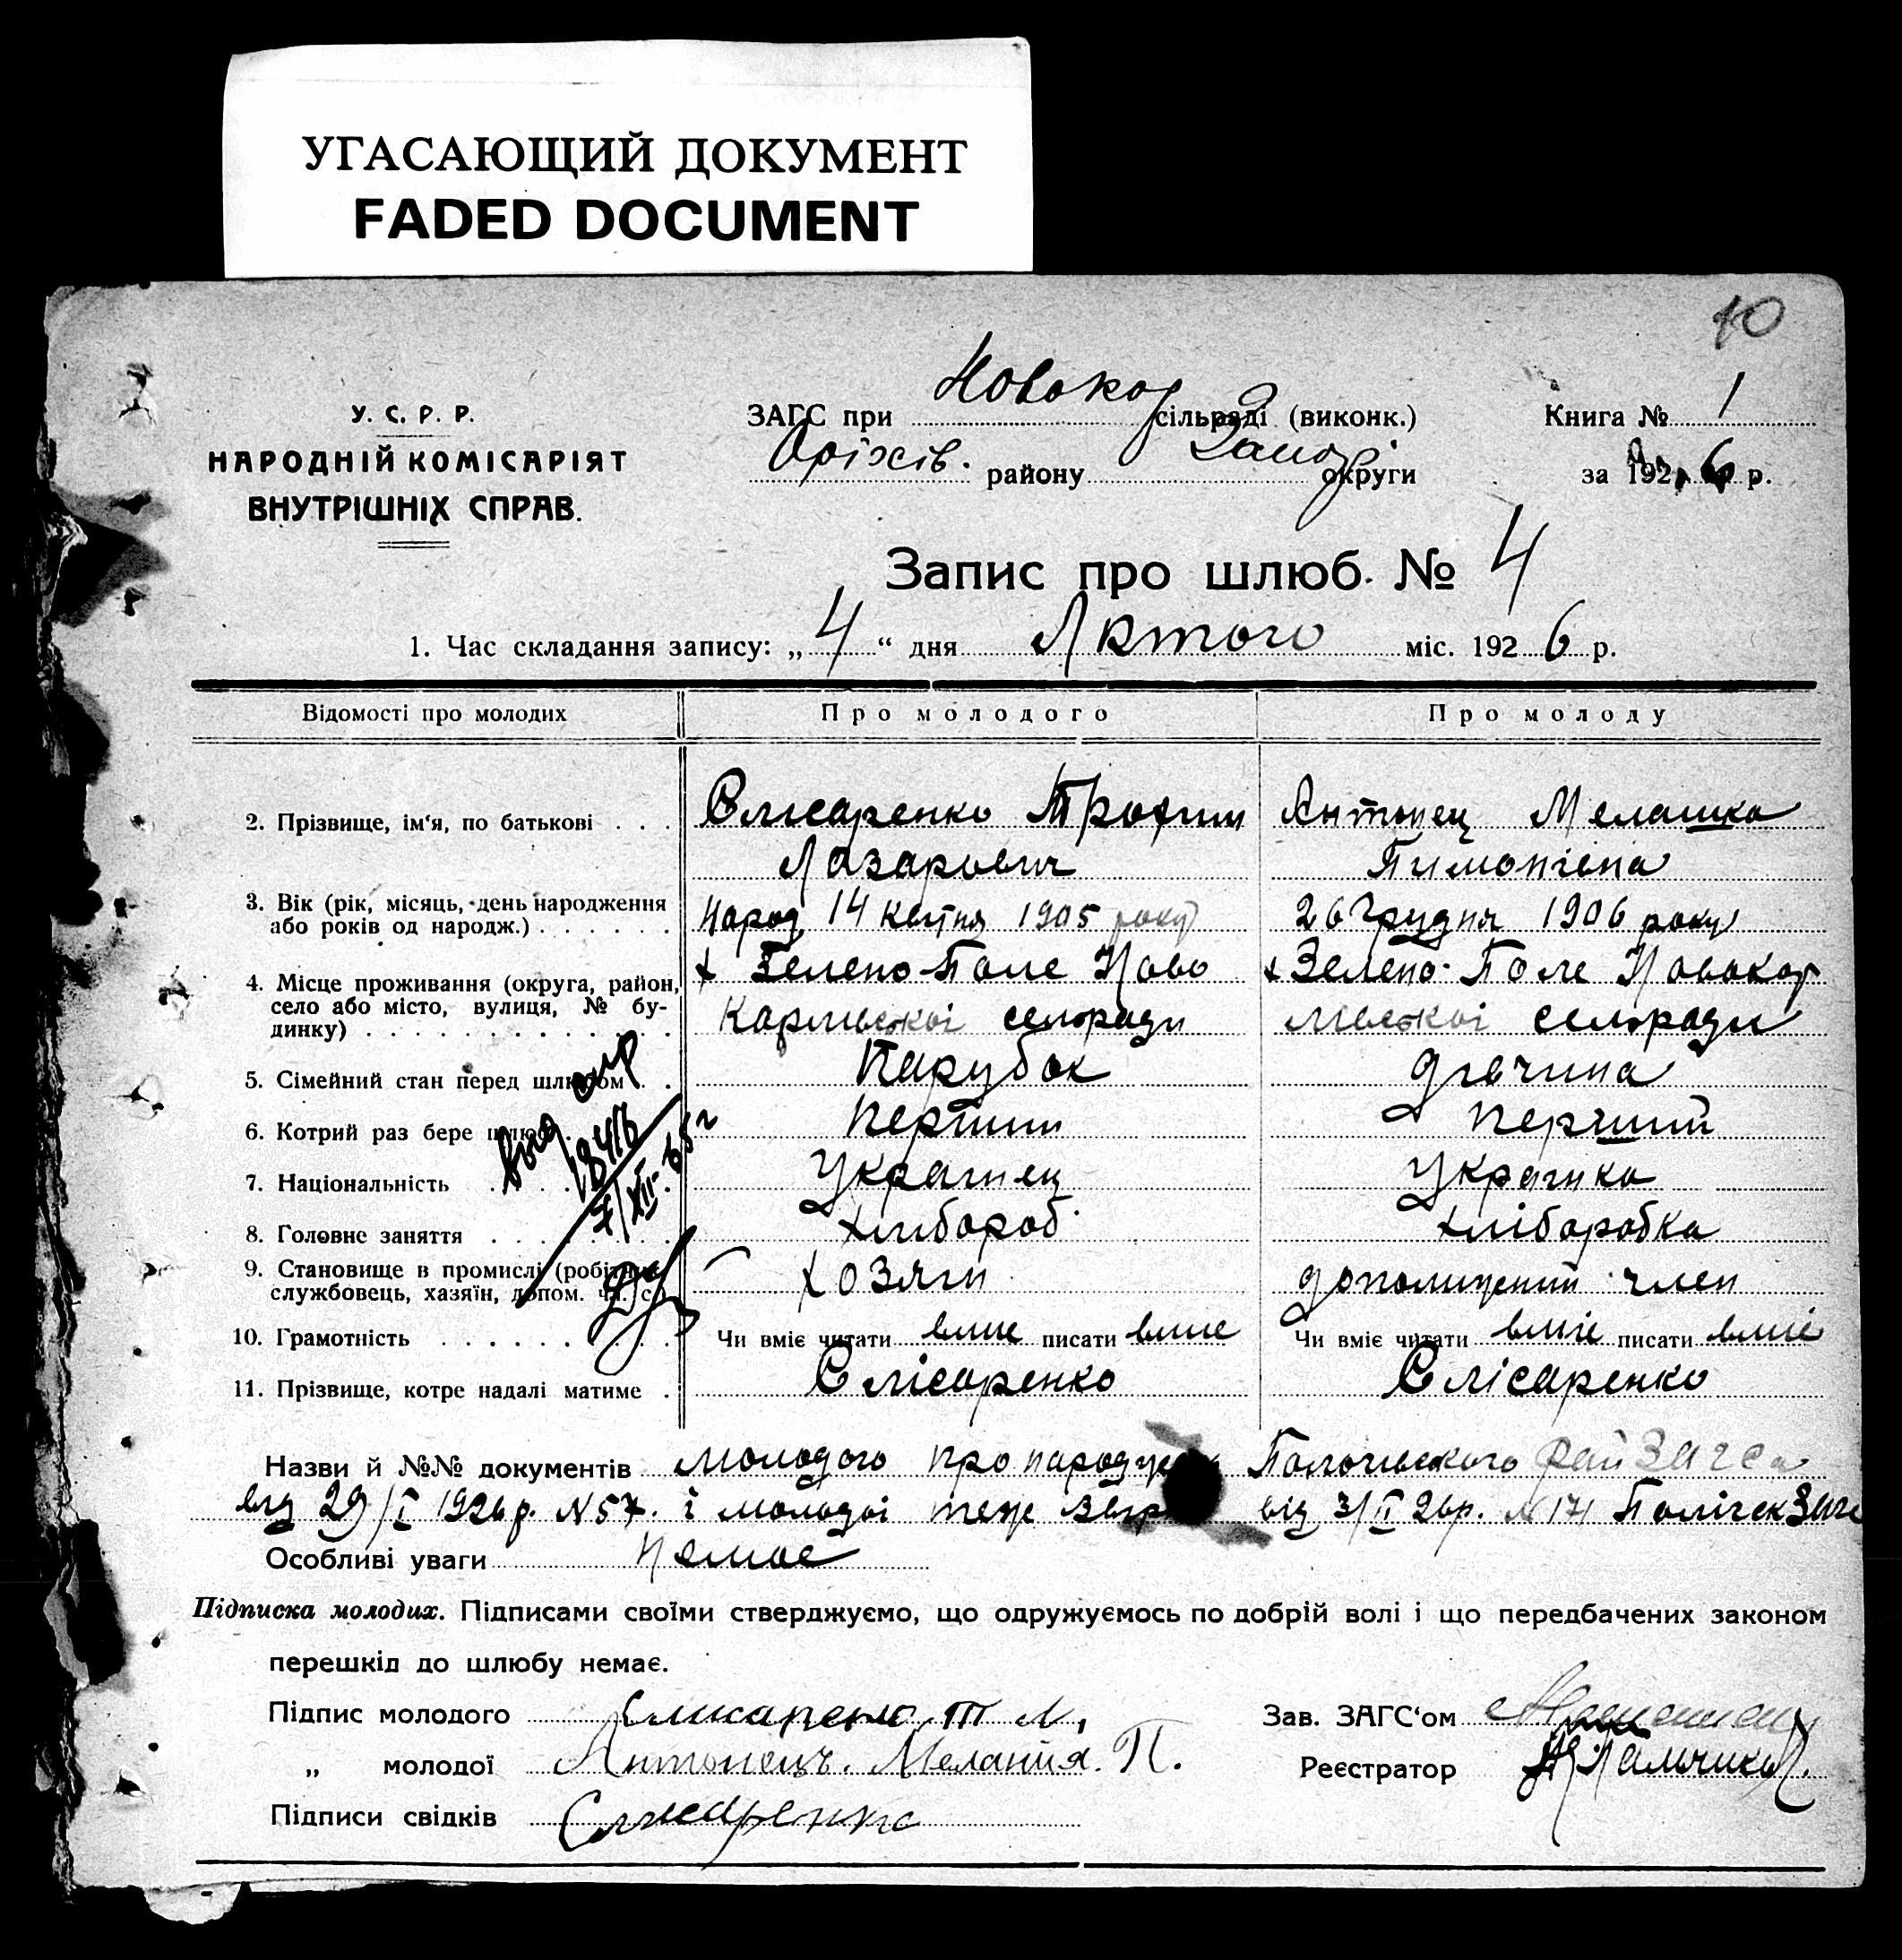 УГАСАЮЩИЙ ДОКУМЕНТ
FADED DOCUMENT
10
У. С. Р. Р.
НАРОДНІЙ КОМІСАРІЯТ
ВНУТРІШНІХ СПРАВ.
ЗАГС при Новокар сільраді (виконк.)
Оріхів. району Запор округи
Книга № 1
за 1926 р.
Запис про шлюб. № 4
1. Час складання запису: „4“ дня Лютого міс. 1926 р.
Відомості про молодих Про молодого Про молоду
2. Прізвище, ім'я, по батькові . . . Єлісаренко Трохим Антонец Мелашка
Лазарьвич Пимонівна
3. Вік (рік, місяць, день народження Народ 14 квітня 1905 року 26 Грудня 1906 року
або років од народж.) . . . . . .
х Зелено-Поле Ново х Зелено-Поле Новокар
4. Місце проживання (округа, район,
село або місто, вулиця, № бу- Карлівської сельради лівської сельради
динку) . . . . . . . . . . . .
5. Сімейний стан перед шлюбом . . Парубок дівчина
6. Котрий раз бере шлюб . Перший перший
7. Національність . . . . . . Українец Українка
8. Головне заняття . . . . . . . Хлібороб хліборобка
9. Становище в промислі (робітник, хозяїн дополнуючий член
службовець, хазяїн, допом. чл. с.
10. Грамотність . . . . . . . . . Чи вміє читати вміє писати вміє Чи вміє читати вміє писати вміє
11. Прізвище, котре надалі матиме . Єлісаренко Єлісаренко
Вид спр
18416
7/XII-65 г
Назви й №№ документів молодого про народжен Пологівського рай Загса
від 29/I 1926 р. N 57. і молодої теж від 3/II 26 р. N 171 Загс
Особливі уваги Немає
Підписка молодих. Підписами своїми стверджуємо, що одружуємось по добрій волі і що передбачених законом
перешкід до шлюбу немає.
Підпис молодого Елисаренко Т Л.
Зав. ЗАГС'ом
„ молодої Антонець. Меланія. П.
Реєстратор
Підписи свідків Єлисаренко